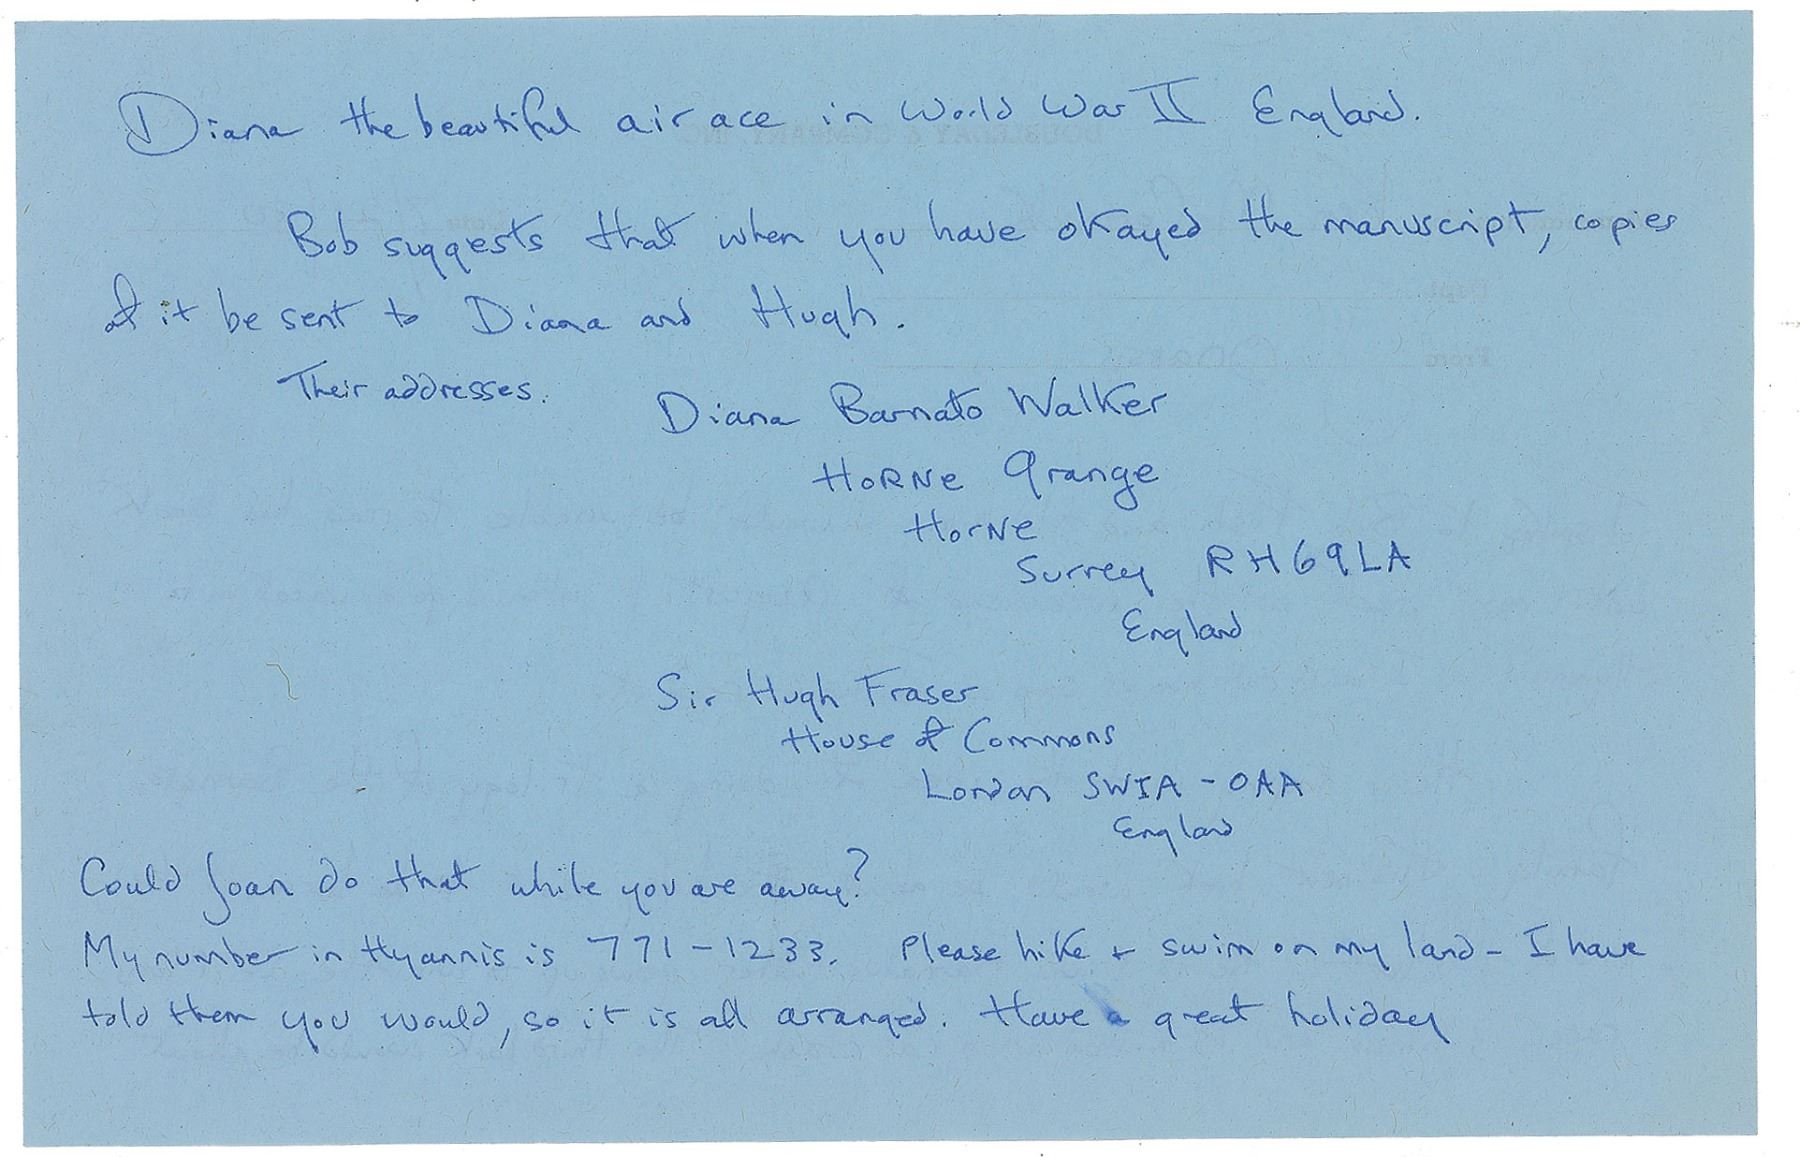 Diana the beautiful air ace in World War II England.
Bob suggests that when you have okayed the manuscript, copies
of it be sent to Diana and Hugh.
Their addresses.
Diana Barnato Walker
HORNe Grange
HorNe
Surrey RH69LA
England
Sir Hugh Fraser
House of Commons
London SWIA - OAA
England
Could Joan do that while you are away?
My number in Hyannis is 771-1233. Please hike + swim on my land - I have
told them you would, so it is all arranged. Have a great holiday